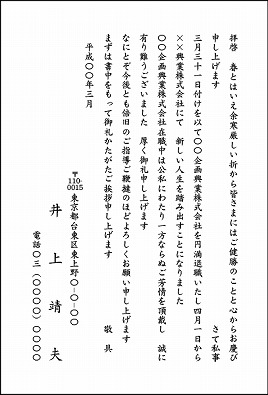 拝啓　春とはいえ余寒厳しい折から皆さまにはご健勝のことと心からお慶び
申し上げます　　さて私事
三月三十一日付けを以て〇〇企画興業株式会社を円満退職いたし四月一日から
××興業株式会社にて　新しい人生を踏み出すことになりました
〇〇企画興業株式会社在職中は公私にわたり一方ならぬご芳情を頂戴し　誠に
有り難うございました　厚く御礼申し上げます
なにとぞ今後とも倍旧のご指導ご鞭撻のほどよろしくお願い申し上げます
まずは書中をもって御礼かたがたご挨拶申し上げます　　敬具
平成〇〇年三月
〒110-0015　東京都台東区東上野〇-〇-〇〇
井上靖夫
電話〇三（〇〇〇〇）〇〇〇〇